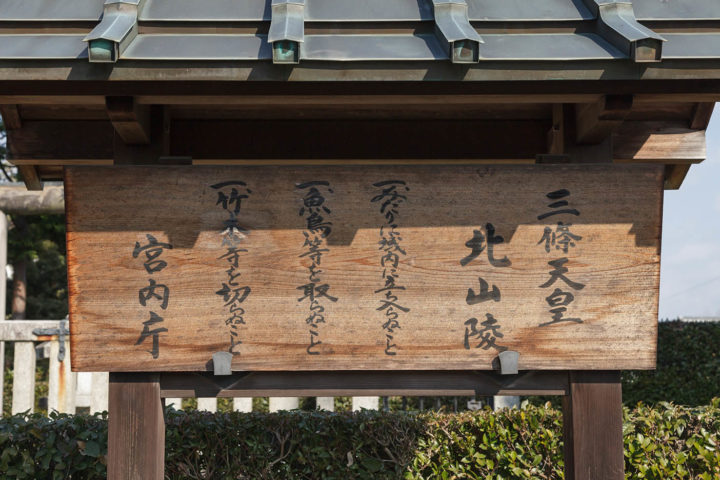 三條天皇
北山陵
一みだりに域内に立入らぬこと
一魚鳥等を取らぬこと
一竹木等を切らぬこと
宮内庁